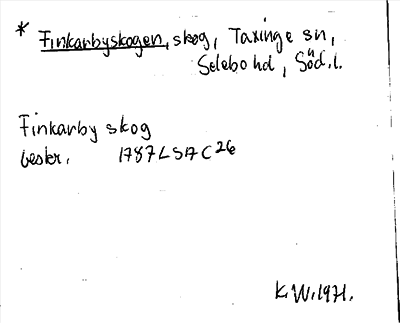 * Finkarbyskogen, skog, Taxinge sn,
Selebo hd, Söd. l.
Finkarby skog
beskr. 1787 LSA C 26
K.W. 1971.